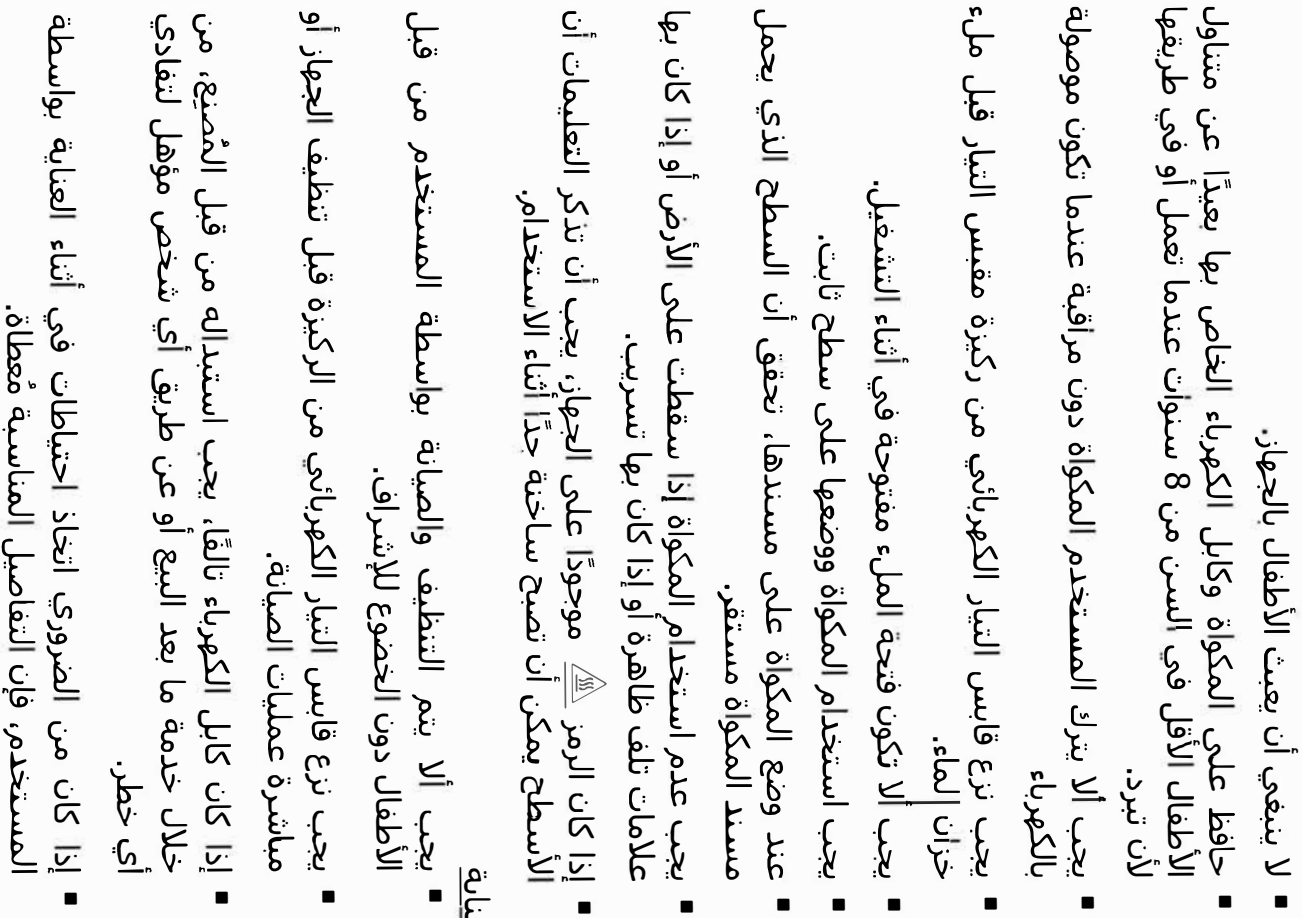 ■ لا ينبغي أن يعبث الأطفال بالجهاز.
■ حافظ على المكواة وكابل الكهرباء الخاص بها بعيدًا عن متناول
الأطفال الأقل في السن من 8 سنوات عندما تعمل أو في طريقها
لأن تبرد.
■ يجب ألا يترك المستخدم المكواة دون مراقبة عندما تكون موصولة
بالكهرباء
■ يجب نزع قابس التيار الكهربائي من ركيزة مقبس التيار قبل ملء
خزان الماء.
■ يجب ألا تكون فتحة الملء مفتوحة في أثناء التشغيل.
■ يجب استخدام المكواة ووضعها على سطح ثابت.
■ عند وضع المكواة على مسندها، تحقق أن السطح الذي يحمل
مسند المكواة مستقر.
■ يجب عدم استخدام المكواة إذا سقطت على الأرض أو إذا كان بها
علامات تلف ظاهرة أو إذا كان بها تسريب.
■ إذا كان الرمز موجودًا على الجهاز، يجب أن تذكر التعليمات أن
الأسطح يمكن أن تصبح ساخنة جدًا أثناء الاستخدام.
■ يجب ألا يتم التنظيف والصيانة بواسطة المستخدم من قبل
الأطفال دون الخضوع للإشراف.
■ يجب نزع قابس التيار الكهربائي من الركيزة قبل تنظيف الجهاز أو
مباشرة عمليات الصيانة.
■ إذا كان كابل الكهرباء تالفًا، يجب استبداله من قبل المُصنِع، من
خلال خدمة ما بعد البيع أو عن طريق أي شخص مؤهل لتفادي
أي خطر.
■ إذا كان من الضروري اتخاذ احتياطات في أثناء العناية بواسطة
المستخدم، فإن التفاصيل المناسبة مُعطاة.